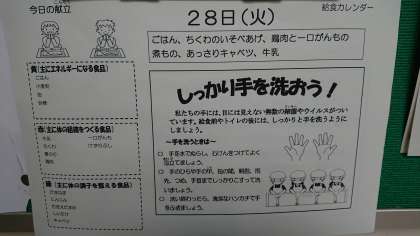 今日の献立
28日(火)
給食カレンダー
ごはん、ちくわのいそべあげ、鶏肉と一口がんもの
煮もの、あっさりキャベツ、牛乳
黄(主にエネルギーになる食品)
ごはん
小麦粉
油
砂糖
赤(主に体の組織をつくる食品)
牛乳
一口がんも
ちくわ
鶏肉
緑(主に体の調子を整える食品)
にんじん
しょうが
キャベツ
しっかり手を洗おう!
私たちの手には、目には見えない無数の細菌やウイルスがつい
ています。給食前やトイレの後には、しっかりと手を洗うように
しましょう。
~手を洗うときは~
○ 手を水でぬらし、石けんをつけてよく
泡立てましょう。
○ 手のひらや手の甲、指の間、親指、指
先、つめ、手首までしっかりこすって洗
いましょう。
○ 洗い終わったら、清潔なハンカチで手
をふきましょう。